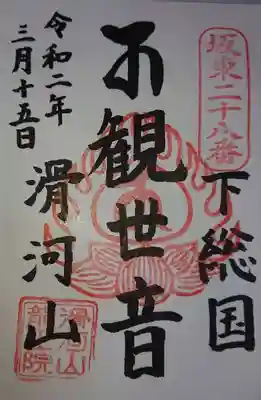 坂東二十八番
下総国
観世音
滑河山
令和二年
三月十五日
滑河山
龍正院